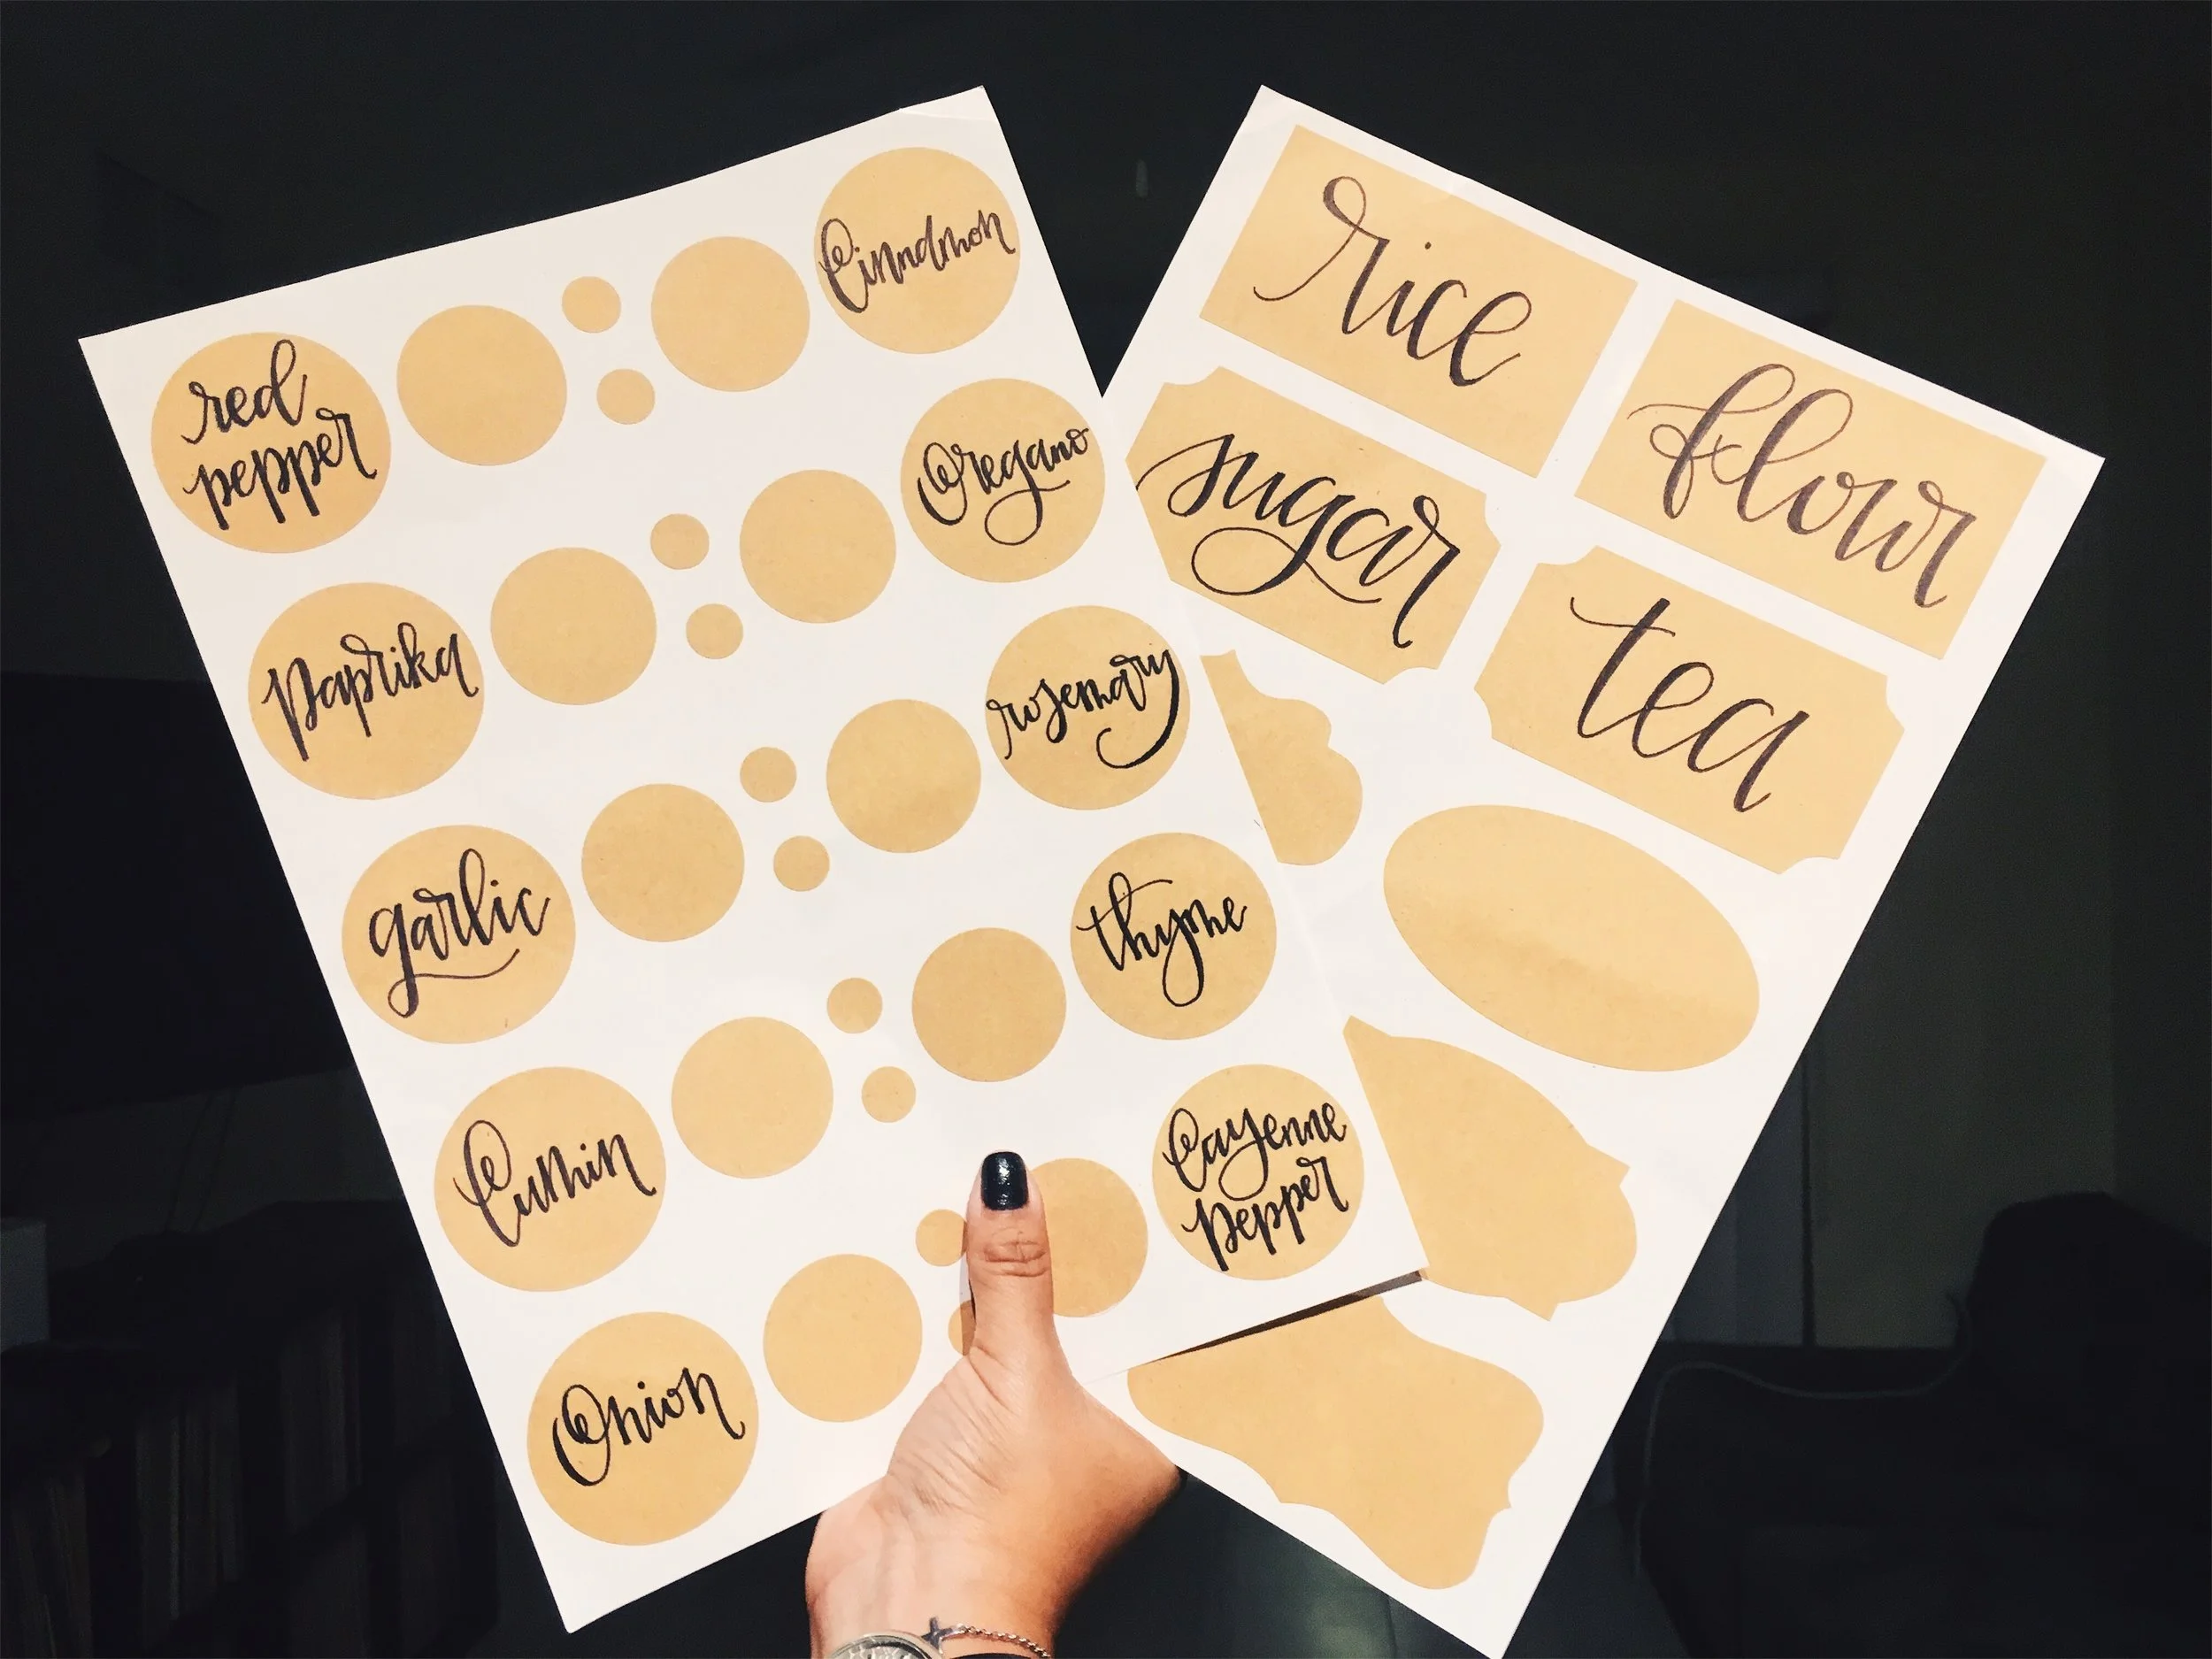 red
pepper
Paprika
garlic
Cumin
Onion
Cinnamon
Oregano
rosemary
thyme
Cayenne
Pepper
rice
flour
sugar
tea